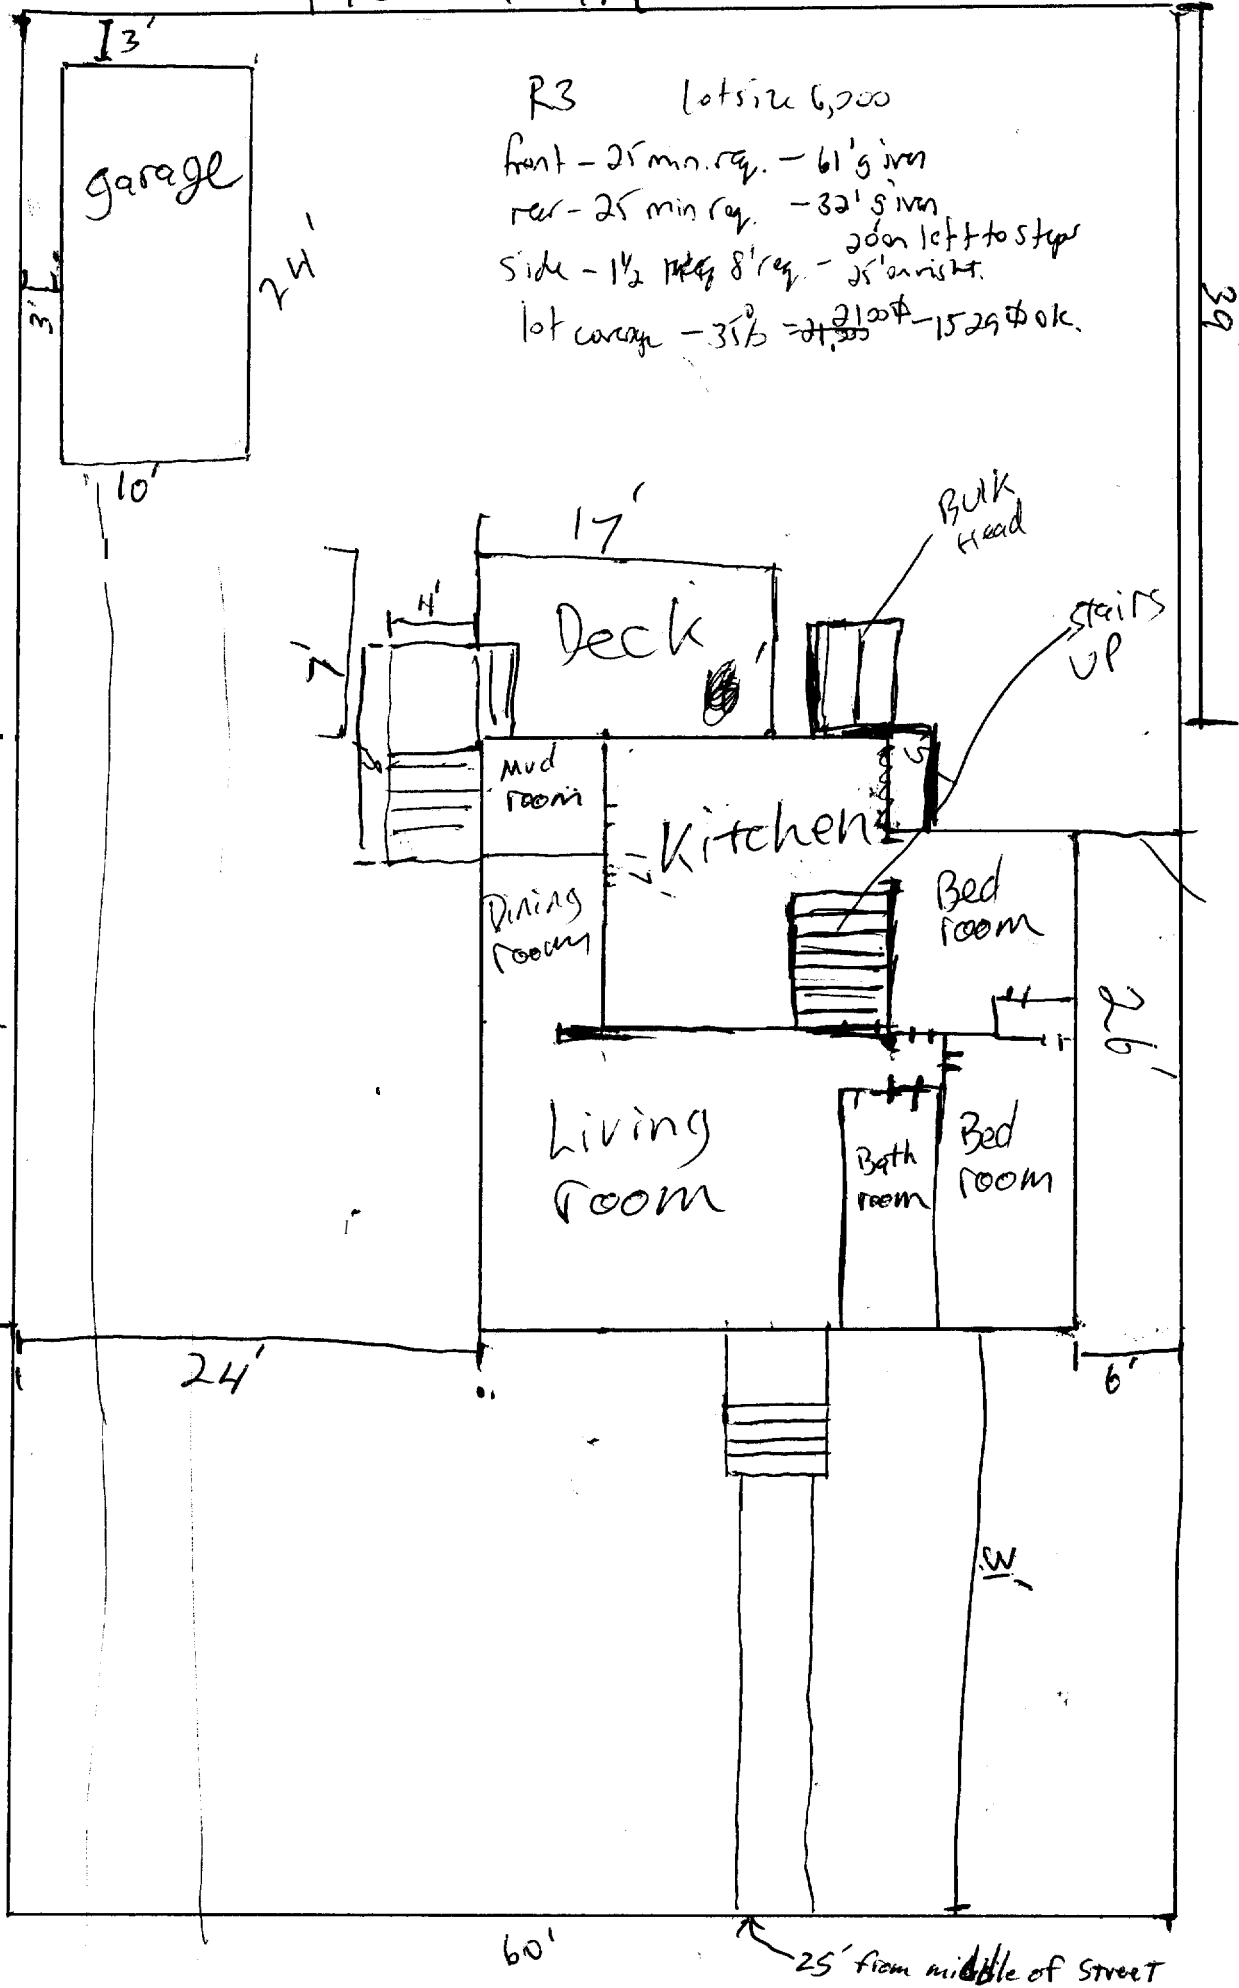 3'
garage
24'
3'
10'
R3 lot size 6,000
front - 25 min. req. - 61' given
rear - 25 min req. - 32' given
side - 1 1/2 8' req. - 20' on left to steps
25' on right.
lot coverage - 35% = 2100 - 1529 ok.
39
17'
Bulk
Head
4'
Deck
7'
stairs
UP
Mud
room
Kitchen
5
Dining
room
Bed
room
26'
Living
room
Bath
room
Bed
room
24'
6'
60'
25' from middle of street